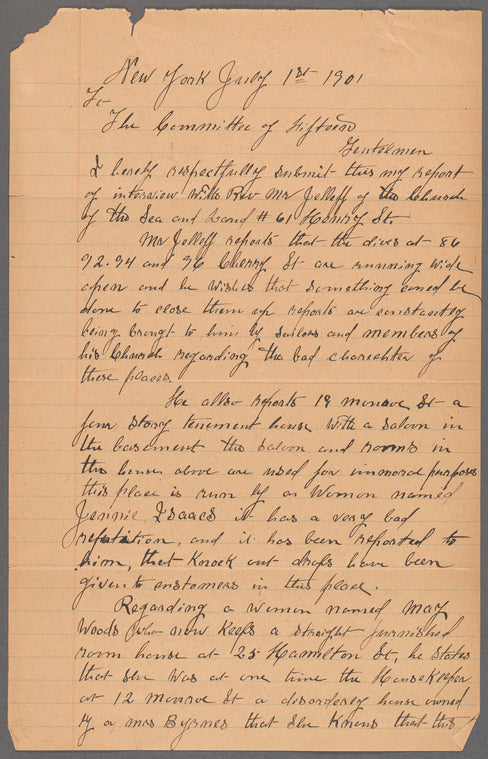 New York July 1st 1901
To
The Committee of Fifteen
Gentelmen
I herely respectfully submit this my report
of interview with Rev Mr Jelleff of the Church
of the Sea and Land # 61 Henry St.
Mr Jelleff reports that the dives at 86
92.94 and 96 Cherry St are running wide
open and he wishes that something coued be
done to close them up reports are constantly
being brougt to him by sailors and members of
his Church regarding the bad charechter of
these places.
He allso reports 19 monroe St a
four story tenement house with a saloon in
the basement the saloon and rooms in
the house above are used for immoral purposes
this place is run by a Woman named
Jennie Isaacs it has a very bad
reputation, and it has been reported to
him, that Knock out drops have been
given to customers in this place.
Regarding a women named Mary
Woods who now Keeps a straight furnished
room house at 25 Hamilton St, he states
that she was at one time the House Keeper
at 12 monroe St a disorderly house owned
by a mrs Byrnes that she Knows that this